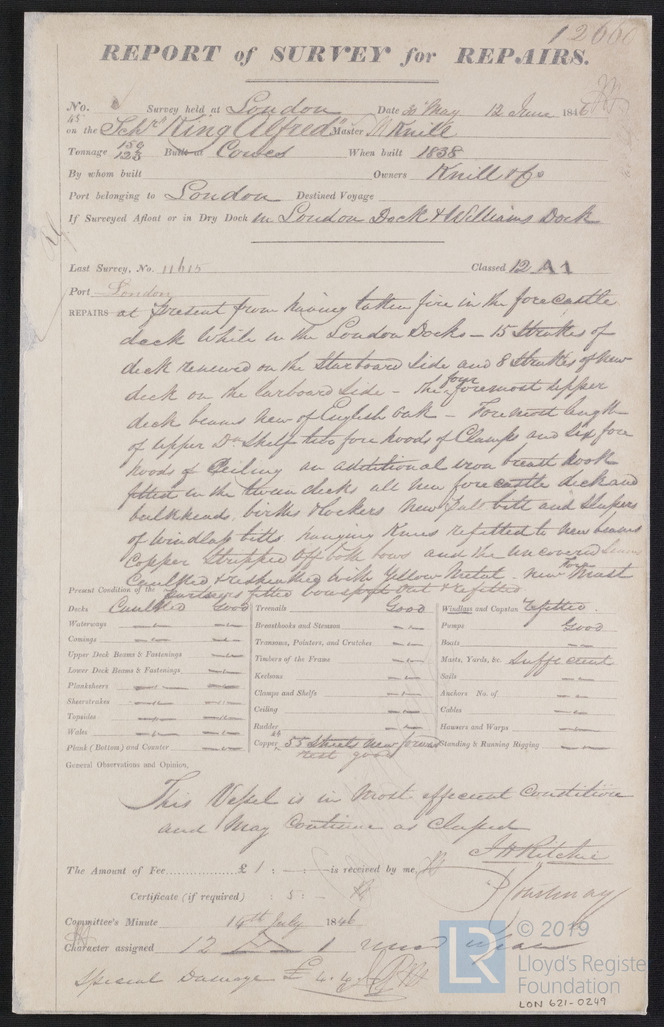 12000
REPORT of SURVEY for REPAIRS.
No. Survey held at London Date 30 May 12 June 1846
on the Schr King Alfred Master Knill
Tonnage 150 123 Built at Cowes When built 1838
By whom built Owners Knill & Co
Port belonging to London Destined Voyage
If Surveyed Afloat or in Dry Dock in London Dock & Williams Dock
Last Survey, No. 11615 Classed 12 A 1
Port London
REPAIRS at present from having taken fire in the forecastle
deck while in the London Docks – 15 Strakes of
deck renewed on the Starboard Side and 8 Strakes of new
deck on the larboard Side – The four foremost upper
deck beams new of English Oak – Foremost length
of upper Dk Shelf two fore hoods of Clamps and Six fore
hoods of Ceiling an additional iron breast hook
fitted in the tween decks all new forecastle deck and
bulkheads, births & lockers new bitt and
of windlass bitts hanging Knees refitted to new beams
Copper Stripped off both bows and the uncovered
Caulked & resheathed with Yellow Metal – new Fore Mast
partners fitted bowsprit Out & refitted
Present Condition of the
Decks Caulked Good Treenails Good Windlass and Capstan Refitted
Waterways Breasthooks and Stemson Pumps Good
Comings Transoms, Pointers, and Crutches Boats
Upper Deck Beams & Fastenings Timbers of the Frame Masts, Yards, &c. Sufficient
Lower Deck Beams & Fastenings Keelsons Sails
Planksheers Clamps and Shelfs Anchors No. of
Sheerstrakes Ceiling Cables
Topsides Rudder Hawsers and Warps
Wales Copper 55 Sheets new forward Standing & Running Rigging
Plank (Bottom) and Counter rest good
General Observations and Opinion,
This Vessel is in most efficient Condition
and may Continue as Classed
J H Ritchie
The Amount of Fee £ 1 : - : - is received by me,
Certificate (if required) : 5 : -
P Courtenay
Committee's Minute 14th July 1846
Character assigned 12 A 1
Special Damage £ 4. 4
© 2019
LR
Lloyd's Register
Foundation
LON 621-0249